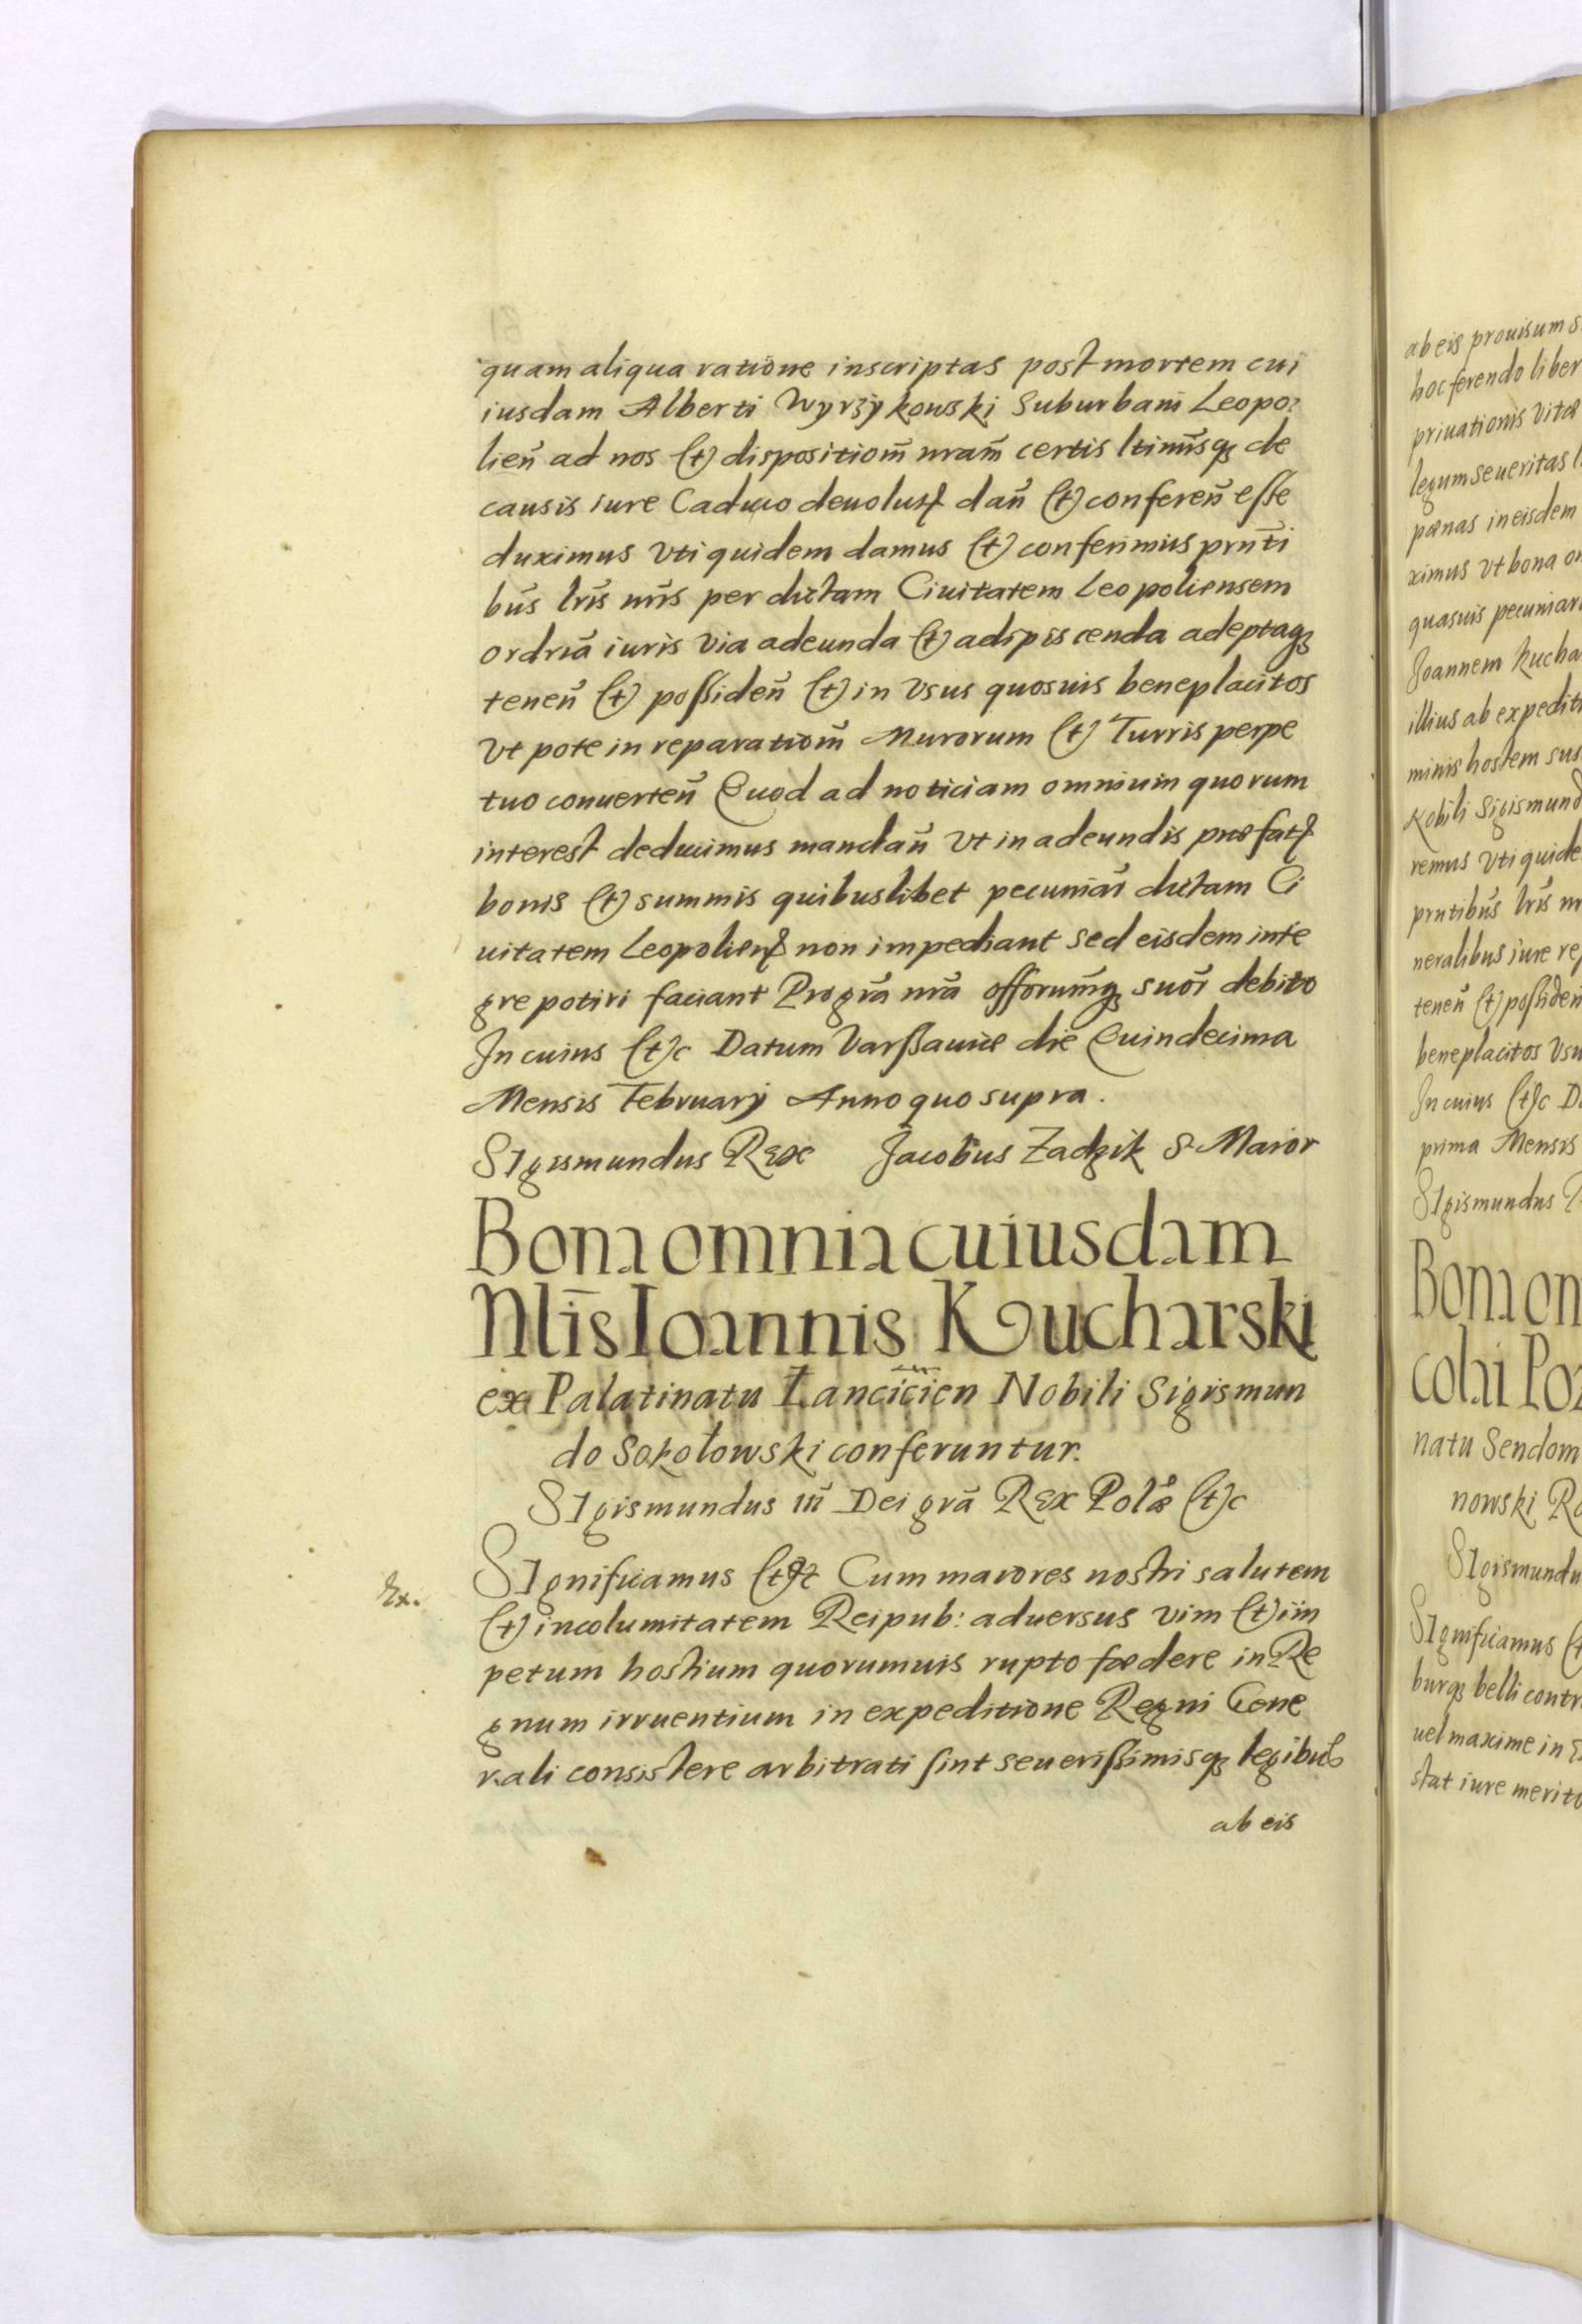 quam aliqua ratione inscriptas post mortem cui
iusdam Alberti Wyrzÿkowski Suburbani Leopo
lien̄ ad nos (t) dispositiom̄ nram̄ certis ltimisq de
causis iure Caduco deuolut dan̄ (t) conferen̄ esse
duximus Vti quidem damus (t) conferimus prn̄ti
bus lris nris per dictam Ciuitatem Leopoliensem
ordriā iuris Via adeunda (t) adipiscenda adeptaq
tenen̄ (t) possiden̄ (t) in Vsus quosuis beneplacitos
Vt pote in reparatiom̄ Murorum (t) Turris perpe
tuo conuerten̄ Quod ad noticiam omnium quorum
interest deducimus mandan̄ Vt in adeundis præfat
bonis (t) summis quibuslibet pecuniar̄ dictam Ci
uitatem Leopolien non impediant sed eisdem inte
gre potiri faciant Pro grā nrā offorum̄q suor̄ debito
In cuius (t)c Datum Varssauiæ die Quindecima
Mensis Februarÿ Anno quo supra.
SIgismundus Rex Jacobus Zadzik S. Maior
Bona omnia cuiusdam
Nlis̄ Ioannis Kucharski
ex Palatinatu Łancicien Nobili Sigismun
do Sokołowski conferuntur.
SIgismundus iii Dei grā Rex Polæ (t)c
Ex.
SIgnificamus (t)c Cum maiores nostri salutem
(t) incolumitatem Reipub: aduersus vim (t) im
petum hostium quorumuis rupto fœdere in Re
gnum irruentium in expeditione Regni Gene
rali consistere arbitrati sint seuerissimisq legibus
ab eis
ab eis prouisum s
hoc ferendo liber
priuationis vitæ
legum seueritas
pœnas in eisdem
ximus Vt bona o
quasuis pecuniar
Joannem Kucha
illius ab expedit
minis hostem sus
Nobili Sigismund
remus Vti quide
prntibus lris n
neralibus iure re
tenen̄ (t) possiden
beneplacitos Vsu
In cuius (t)c D
prima Mensis
SIgismundus R
Bona on
colai Poz
natu Sendom
nowski R
SIgismundu
SIgnificamus (t
burq belli contr
uel maxime in
stat iure merito